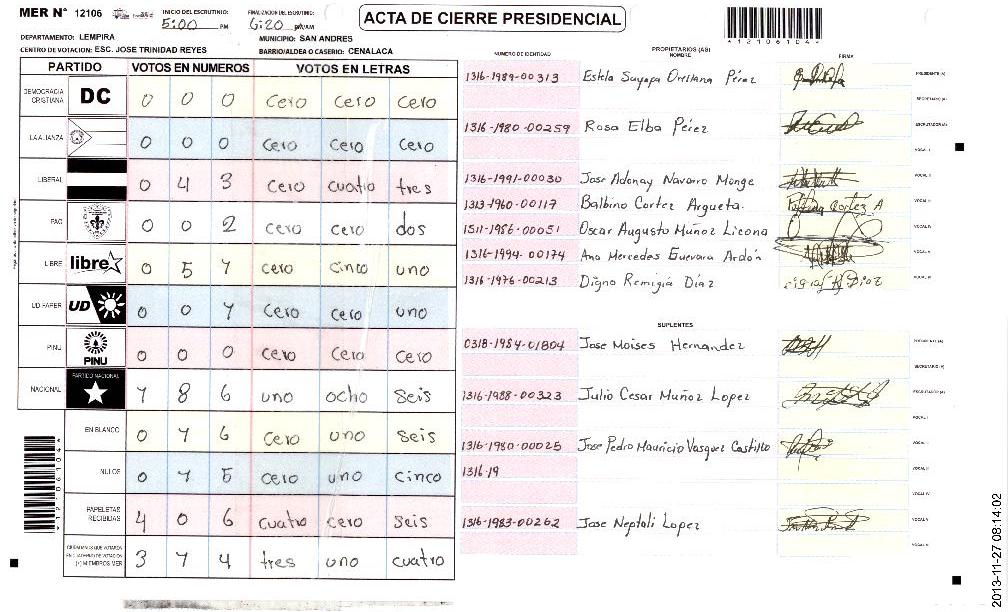 MER N° 12106
INICIO DEL ESCRUTINIO: 5:00 PM
FINALIZACION DEL ESCRUTINIO: 6:20 pm/AM
ACTA DE CIERRE PRESIDENCIAL
*12106104*
DEPARTAMENTO: LEMPIRA
MUNICIPIO: SAN ANDRES
CENTRO DE VOTACION: ESC. JOSE TRINIDAD REYES
BARRIO/ALDEA O CASERIO: CENALACA
PARTIDO VOTOS EN NUMEROS VOTOS EN LETRAS
DEMOCRACIA CRISTIANA DC 0 0 0 cero cero cero
LA ALIANZA 0 0 0 cero cero cero
LIBERAL 0 4 3 cero cuatro tres
PAC 0 0 2 cero cero dos
LIBRE libre 0 5 1 cero cinco uno
UD FAPER UD 0 0 1 cero cero uno
PINU PINU 0 0 0 cero cero cero
NACIONAL PARTIDO NACIONAL 1 8 6 uno ocho seis
EN BLANCO 0 1 6 cero uno seis
NULOS 0 1 5 cero uno cinco
PAPELETAS RECIBIDAS 4 0 6 cuatro cero seis
CIUDADANOS QUE VOTARON EN CUADERNO DE VOTACION (+) MIEMBROS MER 3 1 4 tres uno cuatro
NUMERO DE IDENTIDAD PROPIETARIOS (AS) NOMBRE FIRMA
1316-1989-00313 Estela Suyapa Orellana Pérez PRESIDENTE (A)
SECRETARIO (A)
1316-1980-00259 Rosa Elba Pérez ESCRUTADOR (A)
VOCAL I
1316-1991-00030 Jose Adonay Navarro Monge VOCAL II
1313-1960-00117 Balbino Cortez Argueta. VOCAL III
1511-1986-00051 Oscar Augusto Muñoz Licona VOCAL IV
1316-1994-00174 Ana Mercedes Guevara Ardón VOCAL V
1316-1976-00213 Digno Remigia Díaz VOCAL VI
SUPLENTES
0318-1984-01804 Jose Moises Hernandez PRESIDENTE (A)
SECRETARIO (A)
1316-1988-00323 Julio Cesar Muñoz Lopez ESCRUTADOR (A)
VOCAL I
1316-1980-00025 Jose Pedro Mauricio Vasquez Castillo VOCAL II
1316-19 VOCAL III
VOCAL IV
1316-1983-00262 Jose Neptali Lopez VOCAL V
VOCAL VI
*12106104*
2013-11-27 08:14:02